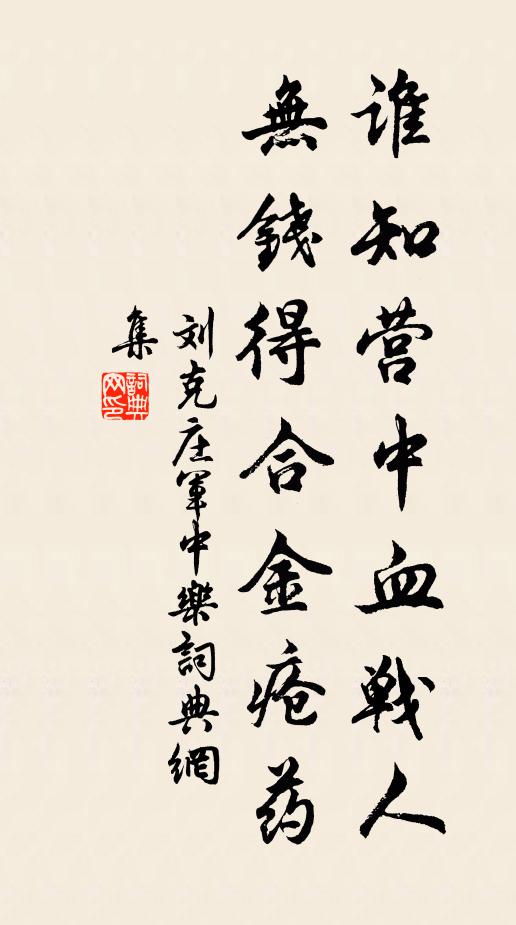 谁知营中血战人
無錢得合金疮药
刘克庄軍中樂詞典網
集
詞典
网印